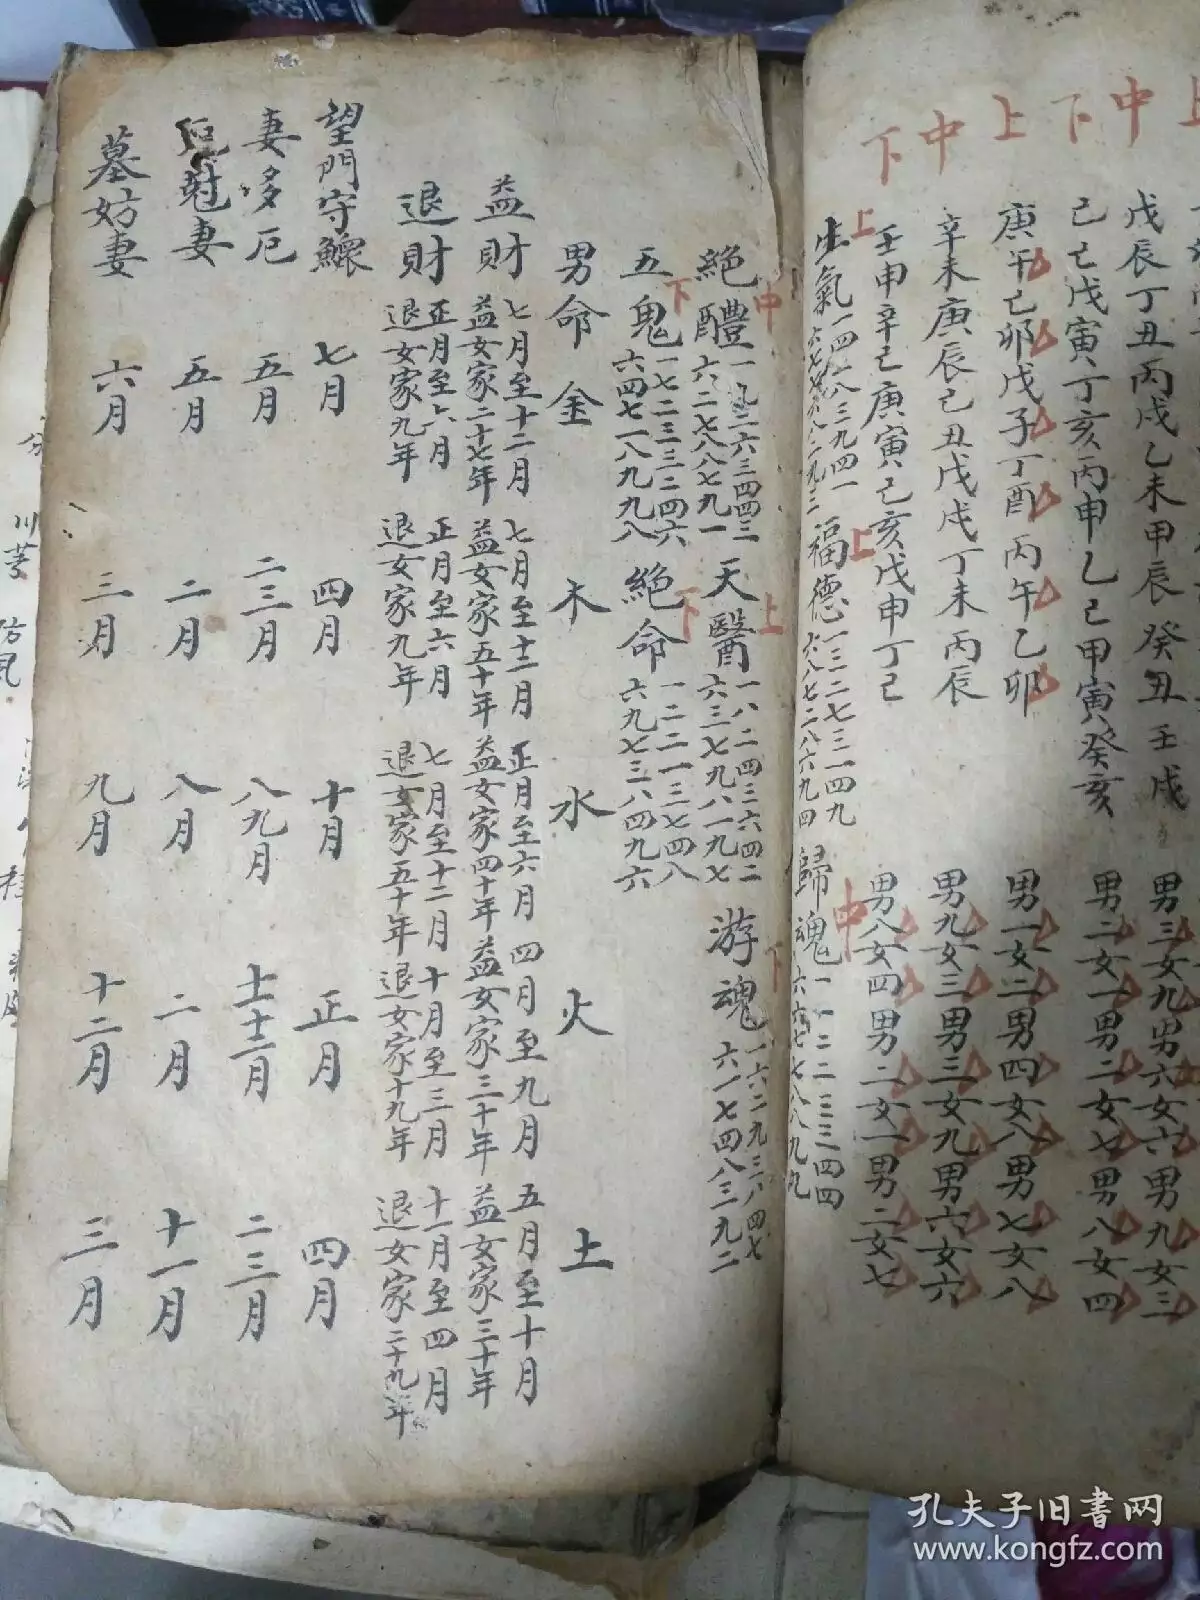 上中下上中下
戊辰丁丑丙戌乙未甲辰癸丑壬戌
男三女九男六女六男九女三
己巳戊寅丁亥丙申乙巳甲寅癸亥
男二女一男二女七男八女四
庚午己卯戊子丁酉丙午乙卯
男一女二男四女八男七女八
辛未庚辰己丑戊戌丁未丙辰
男九女三男三女九男六女六
壬申辛巳庚寅己亥戊申丁巳
男八女四男二女一男二女七
上
生氣
一四二八三九四一
上
福德
一三二七三一四九
六八七二八六九四
中
歸魂
一一二二三三四四
六六七七八八九九
中
絕體
一九二六三四四三
六二七八八七九一
上
天醫
一八二四三六四二
六三七九八一九七
下
游魂
一六二九三八四七
六一七四八三九二
下
五鬼
一七二三三二四六
六四七一八九九八
下
絕命
一二二一三七四八
六九七三八四九六
男命 金 木 水 火 土
益財
七月至十二月
益女家二十七年
七月至十二月
益女家五十年
正月至六月
益女家四十年
四月至九月
益女家三十年
五月至十月
益女家三十年
退財
正月至六月
退女家九年
正月至六月
退女家九年
七月至十二月
退女家五十年
十月至三月
退女家十九年
十一月至四月
退女家二十九年
望門守鰥 七月 四月 十月 正月 四月
妻多厄 五月 二三月 八九月 十一十二月 二三月
妻 五月 二月 八月 二月 十一月
墓妨妻 六月 三月 九月 十二月 三月
川芎 防風
孔夫子旧书网
www.kongfz.com